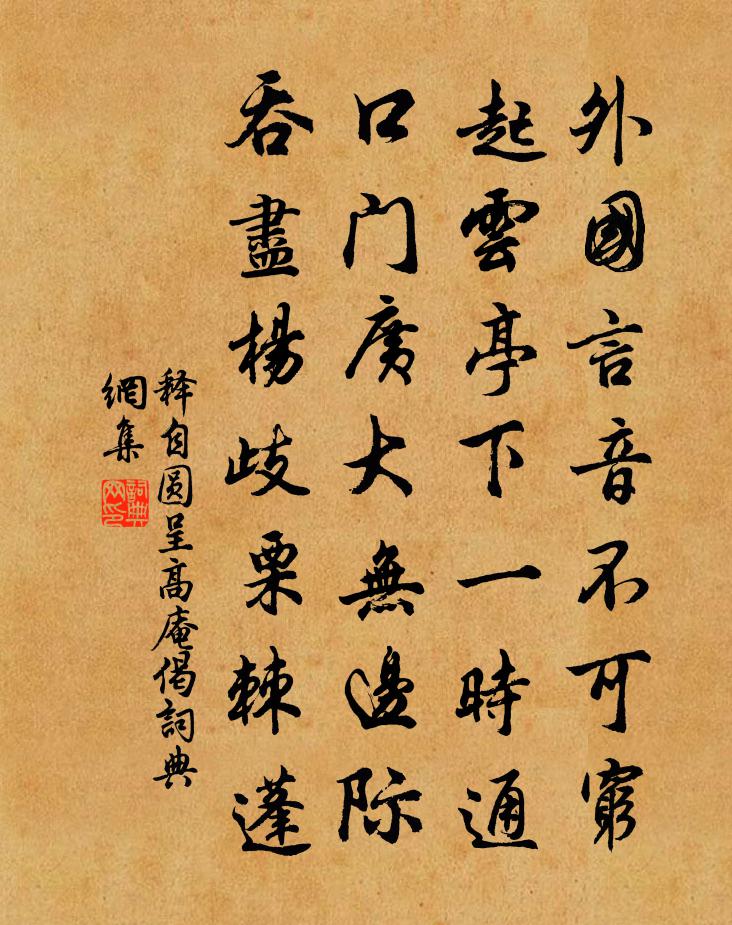 外國言音不可窮
起雲亭下一時通
口門廣大無邊際
吞盡楊歧栗棘蓬
释自圆呈高庵偈詞典
網集
詞典網印